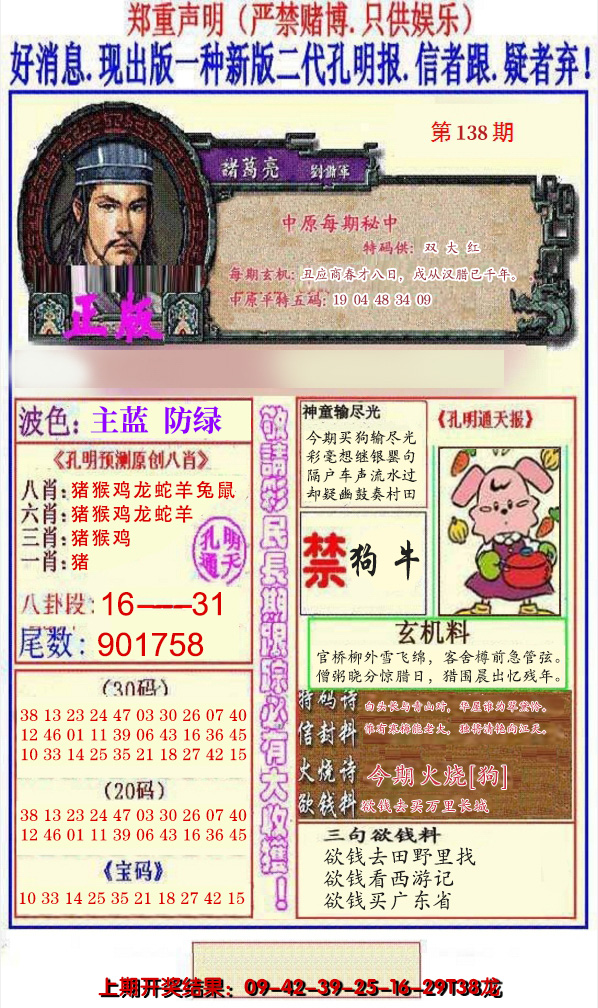 郑重声明（严禁赌博.只供娱乐）
好消息.现出版一种新版二代孔明报.信者跟.疑者弃！
第138期
諸葛亮 劉備軍
中原每期秘中
特码供：双大红
每期玄机：丑应商春才八日，戌从汉腊已千年。
中原平特五码：19 04 48 34 09
正版
波色：主蓝 防绿
《孔明预测原创八肖》
八肖：猪猴鸡龙蛇羊兔鼠
六肖：猪猴鸡龙蛇羊
三肖：猪猴鸡
一肖：猪
孔明通天
八卦段：16——31
尾数：901758
（30码）
38 13 23 24 47 03 30 26 07 40
12 46 01 11 39 06 43 16 36 45
10 33 14 25 35 21 18 27 42 15
（20码）
38 13 23 24 47 03 30 26 07 40
12 46 01 11 39 06 43 16 36 45
《宝码》
10 33 14 25 35 21 18 27 42 15
敬請彩民長期跟踪必有大收獲！
神童输尽光
今期买狗输尽光
彩毫想继银罂句
隔户车声流水过
却疑幽鼓奏村田
《孔明通天报》
禁 狗 牛
玄机料
官桥柳外雪飞绵，客舍樽前急管弦。
僧粥晓分惊腊日，猎围晨出忆残年。
特码诗 白头长与青山对，华屋谁为翠黛怜。
信封料 惟有寒梅能老大，独将清艳向江天。
火烧诗 今期火烧[狗]
欲钱料 欲钱去买万里长城
三句欲钱料
欲钱去田野里找
欲钱看西游记
欲钱买广东省
上期开奖结果：09-42-39-25-16-29T38龙